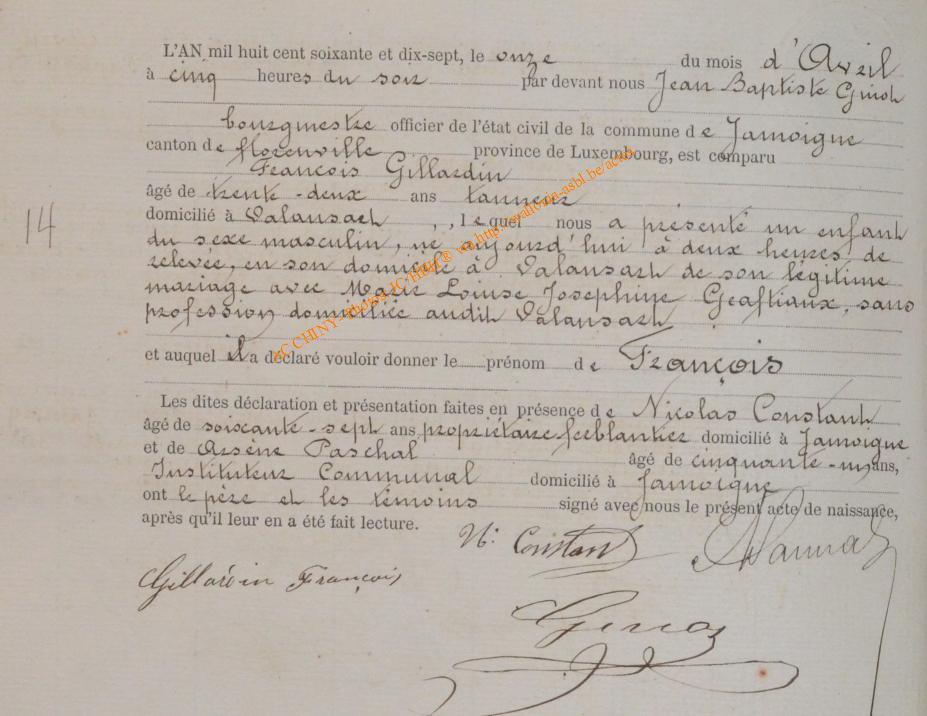 L'AN mil huit cent soixante et dix-sept, le onze du mois d'Avril
à cinq heures du soir par devant nous Jean Baptiste
bourgmestre officier de l'état civil de la commune de Jamoigne
canton de florenville province de Luxembourg, est comparu
François Gillardin
âgé de trente-deux ans tanneur
14
domicilié à Valansart, lequel nous a présenté un enfant
du sexe masculin, né aujourd'hui à deux heures de
relevée, en son domicile à Valansart de son légitime
mariage avec Marie Louise Josephine sans
profession domiciliée audit Valansart
et auquel il a déclaré vouloir donner le prénom de François
Les dites déclaration et présentation faites en présence de Nicolas Constant
âgé de soixante-sept ans propriétaire-ferblantier domicilié à Jamoigne
et de Arsène Paschal âgé de cinquante-un ans,
Instituteur Communal domicilié à Jamoigne
ont le père et les témoins signé avec nous le présent acte de naissance,
après qu'il leur en a été fait lecture.
N. Constant
Gillardin François
SC CHINY -Photos JC/HHH® via http: